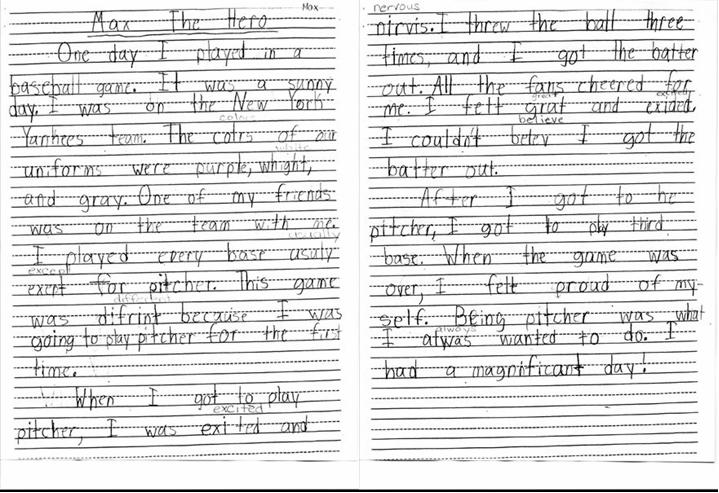 Max
Max The Hero
One day I played in a
baseball game. It was a sunny
day. I was on the New York
colors
Yankees team. The colrs of our
white
uniforms were purple, whight,
and gray. One of my friends
was on the team with me.
usually
I played every base usuly
except
exept for pitcher. This game
different
was difrint because I was
going to play pitcher for the first
time.
When I got to play
excited
pitcher, I was exited and
nervous
nirvis. I threw the ball three
times, and I got the batter
out. All the fans cheered for
great excited
me. I felt grat and exided.
believe
I couldn't belev I got the
batter out.
After I got to be
pitcher, I got to play third
base. When the game was
over, I felt proud of my-
self. Being pitcher was what
always
I alwas wanted to do. I
had a magnificant day!